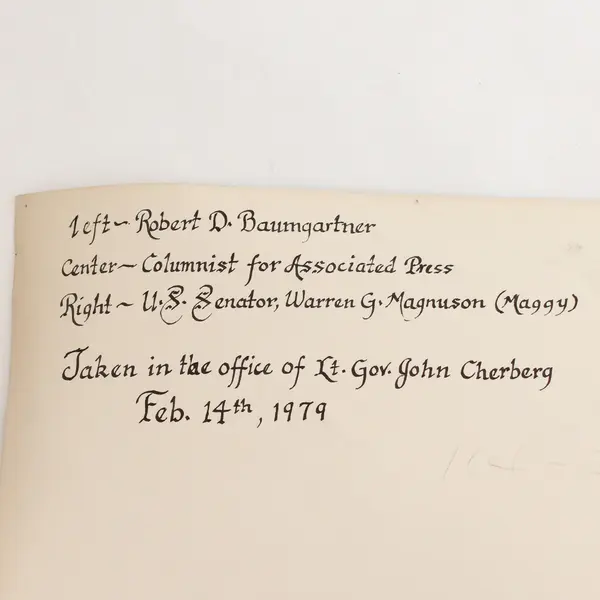 Left ~ Robert D. Baumgartner
Center ~ Columnist for Associated Press
Right ~ U.S. Senator, Warren G. Magnuson (Maggy)
Taken in the office of Lt. Gov. John Cherberg
Feb. 14th, 1979